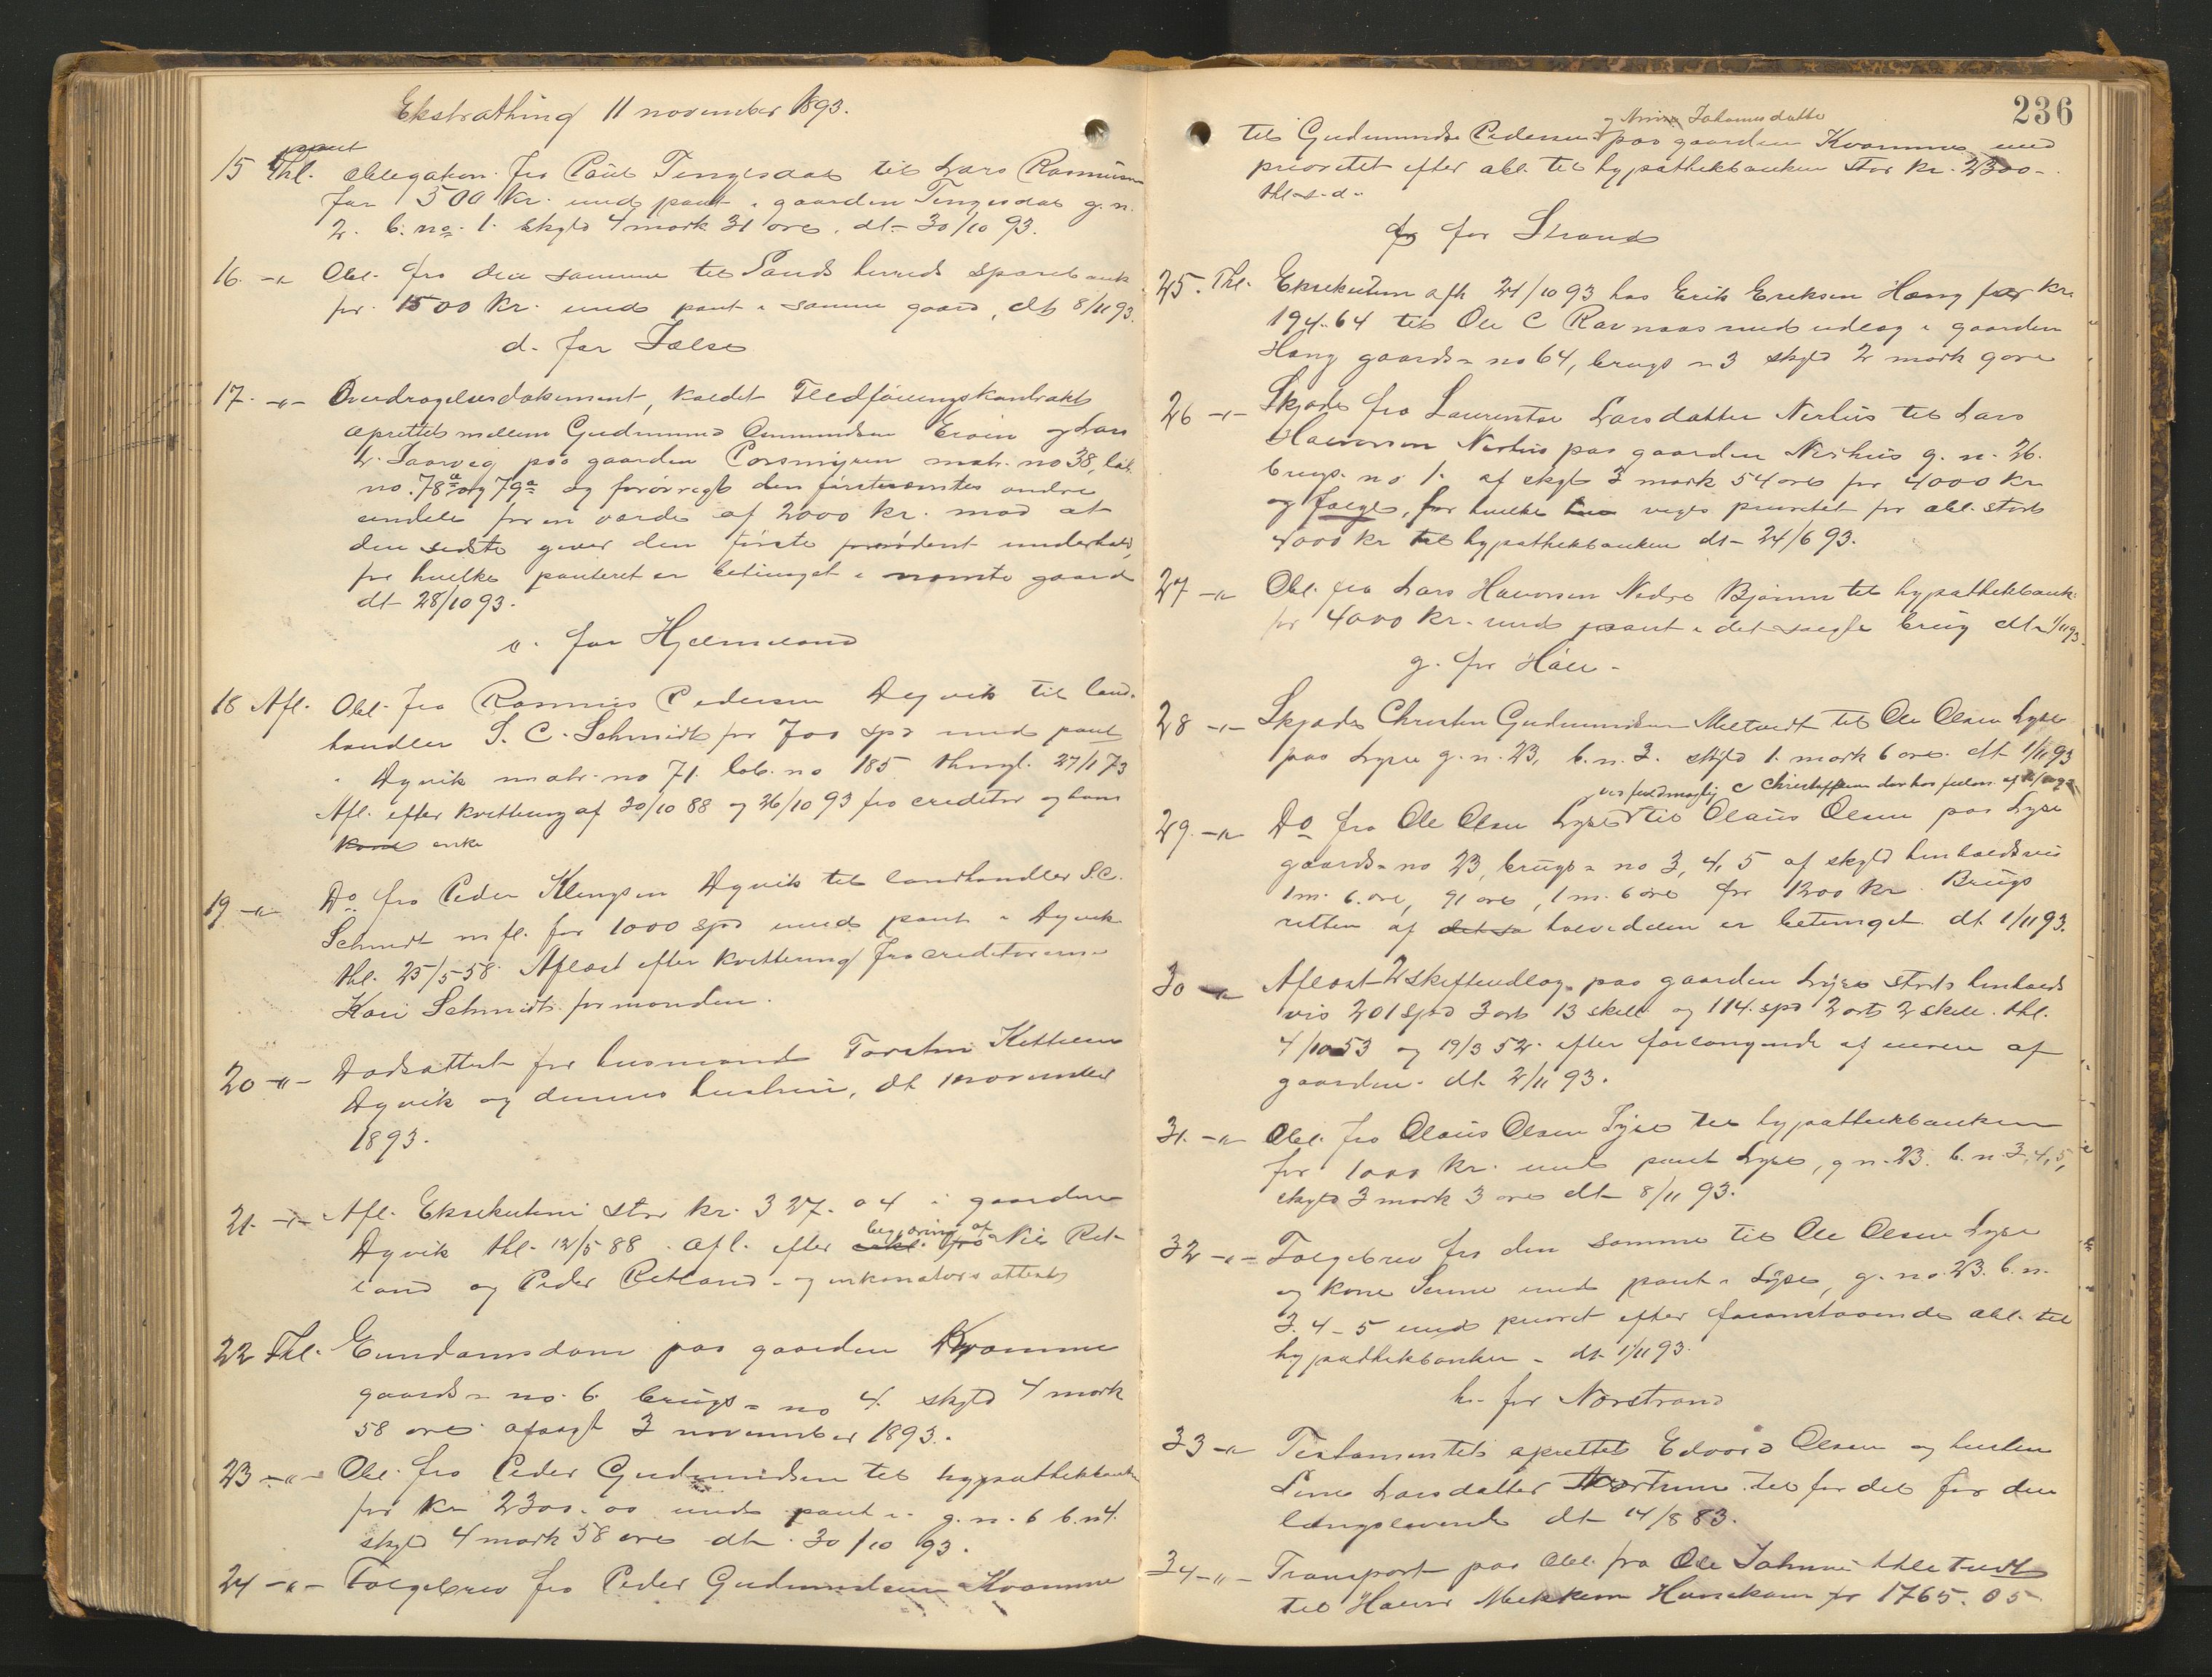 Ekstrathing 11 november 1893.
15 Thl. pant obligation fra Paul Tengesdal til Lars Rasmusen
for 1500 kr. med pant i gaarden Tengesdal g. n.
2. b. no. 1. skyld 4 mark 31 øre. dt. 30/10 93.
16. -"- Obl. fra den samme til Sands herreds sparebank
for 1500 kr. med pant i samme gaard, dt 8/11 93.
d. for Jælse
17. -"- Overdragelsesdokument, kaldet Fledføringskontrakt
oprettet mellem Gudmund Amundsen Eroen og Lars
L. Saarvig paa gaarden matr. no 38, løb.
no. 78a og 79a og forøvrigt den førstnævntes andre
eiendele for en værdi af 2000 kr. mod at
den sidste giver den første forsvarligt underhold,
for hvilke panteret er betinget i nævnte gaard
dt 28/10 93.
e. for Hjelmeland
18 Afl. Obl. fra Rasmus Pedersen Dyvik til land-
handler S. C. Schmidt for 700 spd med pant
i Dyvik matr. no 71. løb. no 185 thingl. 27/1 73
Afl. efter kvittering af 30/10 88 og 26/10 93 fra creditor og hans
kone enke
19 -"- Do fra Peder Klengsen Dyvik til landhandler S.C.
Schmidt m fl. for 1000 spd med pant i Dyvik
thl. 25/5 58. Aflæst efter kvittering fra creditorerne
Kari Schmidt formynderen.
20 -"- Dødsattest for husmand Torsten Kittelsen
Dyvik og dennes hustru, dt 1 november
1893.
21. -"- Afl. Eksekution stor kr. 327. 04 i gaarden
Dyvik thl. 12/5 88. afl. efter begjæring af Nils Ret-
land og Peder Retland og inkonators attest
22 Thl. Eiendomsdom paa gaarden Kvamme
gaards- no. 6 brugs- no 4. skyld 4 mark
58 øre afsagt 3 november 1893.
23 -"- Obl. fra Peder Gudmundsen til hypothekbanken
for kr 2300. 00 med pant i g. n. 6 b. n 4.
skyld 4 mark 58 øre dt. 30/10 93.
24 -"- Følgebrev fra Peder Gudmundsen Kvamme
236
og Anna Johannesdatter
til Gudmund Pedersen paa gaarden Kvamme med
prioritet efter obl. til hypothekbanken stor kr. 2300 -
thl. s. d.
f for Strand
25. Thl. Eksekution afh 24/10 93 hos Erik Eriksen Heng for kr.
194.64 til Ole C Ravnaas med udlæg i gaarden
Heng gaards- no 64, brugs- 3 skyld 2 mark 9 øre
26 -"- Skjøde fra Laurentse Larsdatter Nerhus til Lars
Halvorsen Nerhus paa gaarden Nerhus g. n. 26.
brugs. no 1. af skyld 3 mark 54 øre for 4000 kr
og følge, for hvilke viges prioritet for obl. stor
4000 kr til hypothekbanken dt 24/6 93.
27 -"- Obl. fra Lars Halvorsen Nedre til hypothekbank.
for 4000 kr. med pant i det solgte brug dt 1/11 93.
g. for Høle -
28 -"- Skjøde Christen Gudmundsen Meltveit til Ole Olsen Lyse
paa Lyse g. n. 23, b. n. 3. skyld 1. mark 6 øre. dt 1/11 93
29 -"- Do fra Ole Olsen Lyse til Olaus Olsen paa Lyse
gaards- no 23, brugs- no 3, 4, 5 af skyld henholdsvis
1 m. 6. øre, 91 øre, 1 m. 6 øre for 1200 kr. Brugs
retten af det ha halvdelen er betinget dt 1/11 93.
30 -"- Aflæst 2 skifteudlæg paa gaarden Lyse store henholds
vis 201 spd 3 ort 13 skill og 114 spd 2 ort 2 skill. thl.
4/10 53 og 19/3 52. efter forlangende af eieren af
gaarden. dt 2/11 93.
31. -"- Obl. fra Olaus Olsen Lyse til hypothekbanken
for 1000 kr. med pant Lyse, g n. 23. b. n. 3, 4, 5,
skyld 3 mark 3 øre dt 8/11 93.
32 -"- Følgebrev fra den samme til Ole Olsen Lyse
og kone med pant i Lyse, g. no. 23. b. n.
3. 4 - 5 med priorit efter foranstaaende obl. til
hypothekbanken - dt 1/11 93.
h. for Norstrand
33 -"- Testamentet oprettet Edvard Olsen og hustru
Larsdatter til fordel for den
længstlevende dt 14/8 83.
34 -"- Transport paa Obl. fra Ole
til for 1765. 05